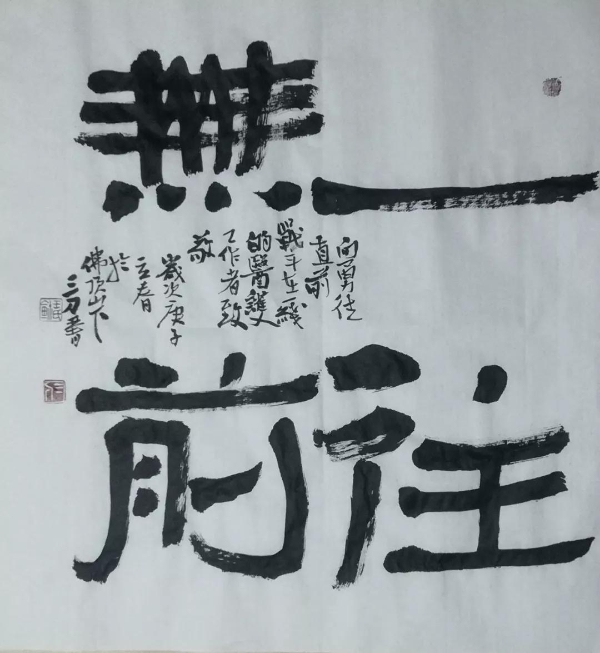 一往
無前
向勇往
直前
戰斗在一綫
的醫護
工作者致
敬
歲次庚子
立春
於
佛頂山下
三刀書